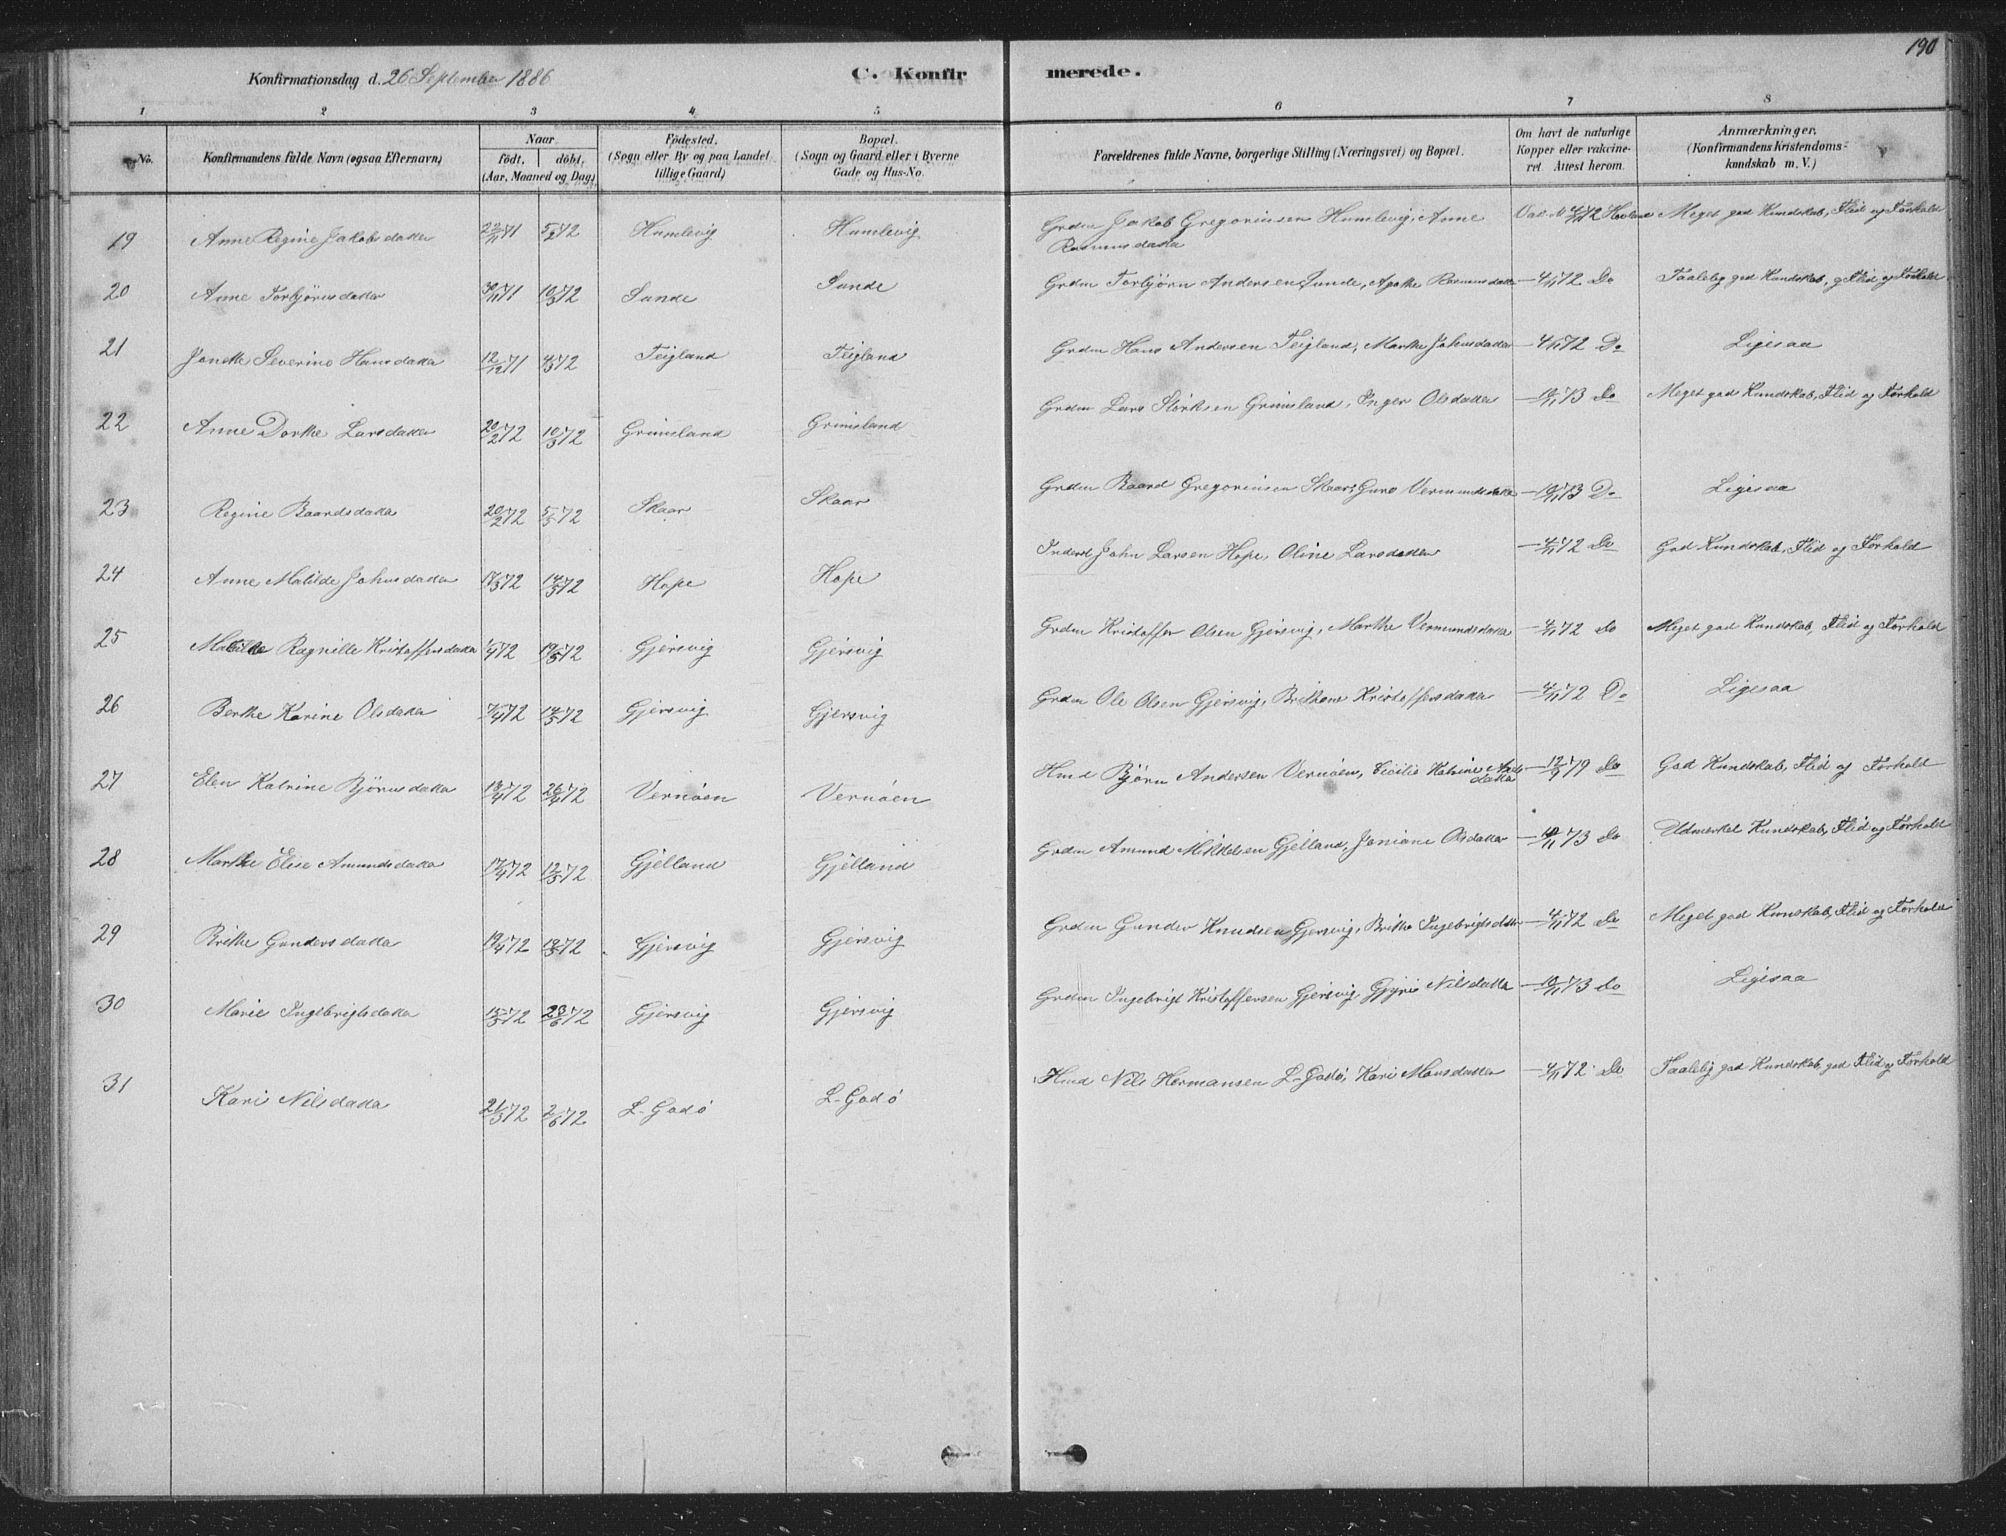 190
Konfirmationsdag d. 26 September 1886
C. Konfirmerede.
1 2 3 4 5 6 7 8
No.
Konfirmandens fulde Navn (ogsaa Efternavn)
Naar
født, døbt,
(Aar, Maaned og Dag)
Fødested.
(Sogn eller By og paa Landet
tillige Gaard)
Bopæl.
(Sogn og Gaard eller i Byerne
Gade og Hus-No.
Forældrenes fulde Navne, borgerlige Stilling (Næringsvei) og Bopæl.
Om havt de naturlige
Kopper eller vakcine-
ret. Attest herom.
Anmærkninger.
(Konfirmandens Kristendoms-
kundskab m. V.)
19 Anne Regine Jakobsdatter 22/11 71 5/2 72 Humlevig Humlevig Grdm Jakob Gregoriusen Humlevig, Anne Vac. 4/11 72 Meget god Kundskab, Flid og Forhold
Rasmusdatter
20 Anne Torbjørnsdatter 30/11 71 10/3 72 Sunde Sunde Grdm Torbjørn Andersen Sunde, Agathe Rasmusdatter — 4/11 72 Do Taalelig god Kundskab, g Flid og Forhold
21 Janette Severine Hansdatter 12/12 71 4/3 72 Teigland Teigland Grdm Hans Andersen Teigland, Marthe Johnsdatter — 4/11 72 Do Ligesaa
22 Anne Dorthe Larsdatter 20/2 72 10/3 72 Grimsland Grimsland Grdm Lars Størksen Grimsland, Inger Olsdatter — 10/11 73 Do Meget god Kundskab, Flid og Forhold
23 Regine Baardsdatter 20/2 72 5/5 72 Skaar Skaar Grdm Baard Gregoriusen Skaar, Guro Vermundsdatter — 10/11 73 Do Ligesaa
24 Anne Matilde Johnsdatter 17/3 72 14/5 72 Hope Hope Inderst John Larsen Hope, Oline Larsdatter — 4/11 72 Do God Kundskab, Flid og Forhold
25 Matilde Ragnille Kristoffersdatter 1/4 72 19/5 72 Gjersvig Gjersvig Grdm Kristoffer Olsen Gjersvig, Marthe Vermundsdatter — 4/11 72 Do Meget god Kundskab, Flid og Forhold
26 Berthe Karine Olsdatter 7/4 72 14/5 72 Gjersvig Gjersvig Grdm Ole Olsen Gjersvig, Brithane Kristoffersdatter — 4/11 72 Do Ligesaa
27 Elen Katrine Bjørnsdatter 13/4 72 26/4 72 Vernøen Vernøen Hmd Bjørn Andersen Vernøen, Cicilie Katrine Nilsdatter — 12/9 79 Do God Kundskab, Flid og Forhold
28 Marthe Elise Amundsdatter 17/4 72 12/5 72 Gjelland Gjelland Grdm Amund Mikkelsen Gjelland, Janiane Olsdatter — 10/11 73 Do Udmerket Kundskab, Flid og Forhold
29 Brithe Gundersdatter 19/4 72 19/5 72 Gjersvig Gjersvig Grdm Gunder Knudsen Gjersvig, Brithe Ingebrigtsdatter — 4/11 72 Do Meget god Kunskab, Flid og Forhold
30 Marie Ingebrigtsdatter 13/5 72 23/6 72 Gjersvig Gjersvig Grdm Ingebrigt Kristoffersen Gjersvig, Gjyri Nilsdatter — 10/11 73 Do Ligesaa
31 Kari Nilsdatter 21/5 72 2/6 72 L-Godø L-Godø Hmd Nils Hermansen L-Godø, Kari Monsdatter — 4/11 72 Do Taalelig god Kundskab, god Flid og Forhold